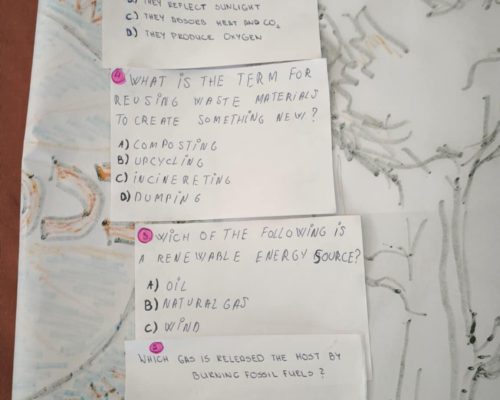 B) THEY REFLECT SUNLIGHT
C) THEY ABSORB HEAT AND CO₂
D) THEY PRODUCE OXYGEN
4 WHAT IS THE TERM FOR
REUSING WASTE MATERIALS
TO CREATE SOMETHING NEW?
A) COMPOSTING
B) UPCYCLING
C) INCINERETING
D) DUMPING
WICH OF THE FOLLOWING IS
A RENEWABLE ENERGY SOURCE?
A) OIL
B) NATURAL GAS
C) WIND
2
WHICH GAS IS RELEASED THE MOST BY
BURNING FOSSIL FUELS?